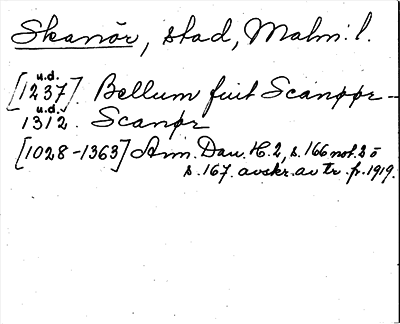 Skanör, stad, Malm. l.
u.d.
[1237]. Bellum fuit Scanppr-
u.d.
1312. Scanpr
[1028-1363] Ann. Dan. H. 2, s. 166 not. 2 o
s. 167. avskr. av tr. fr. 1919.